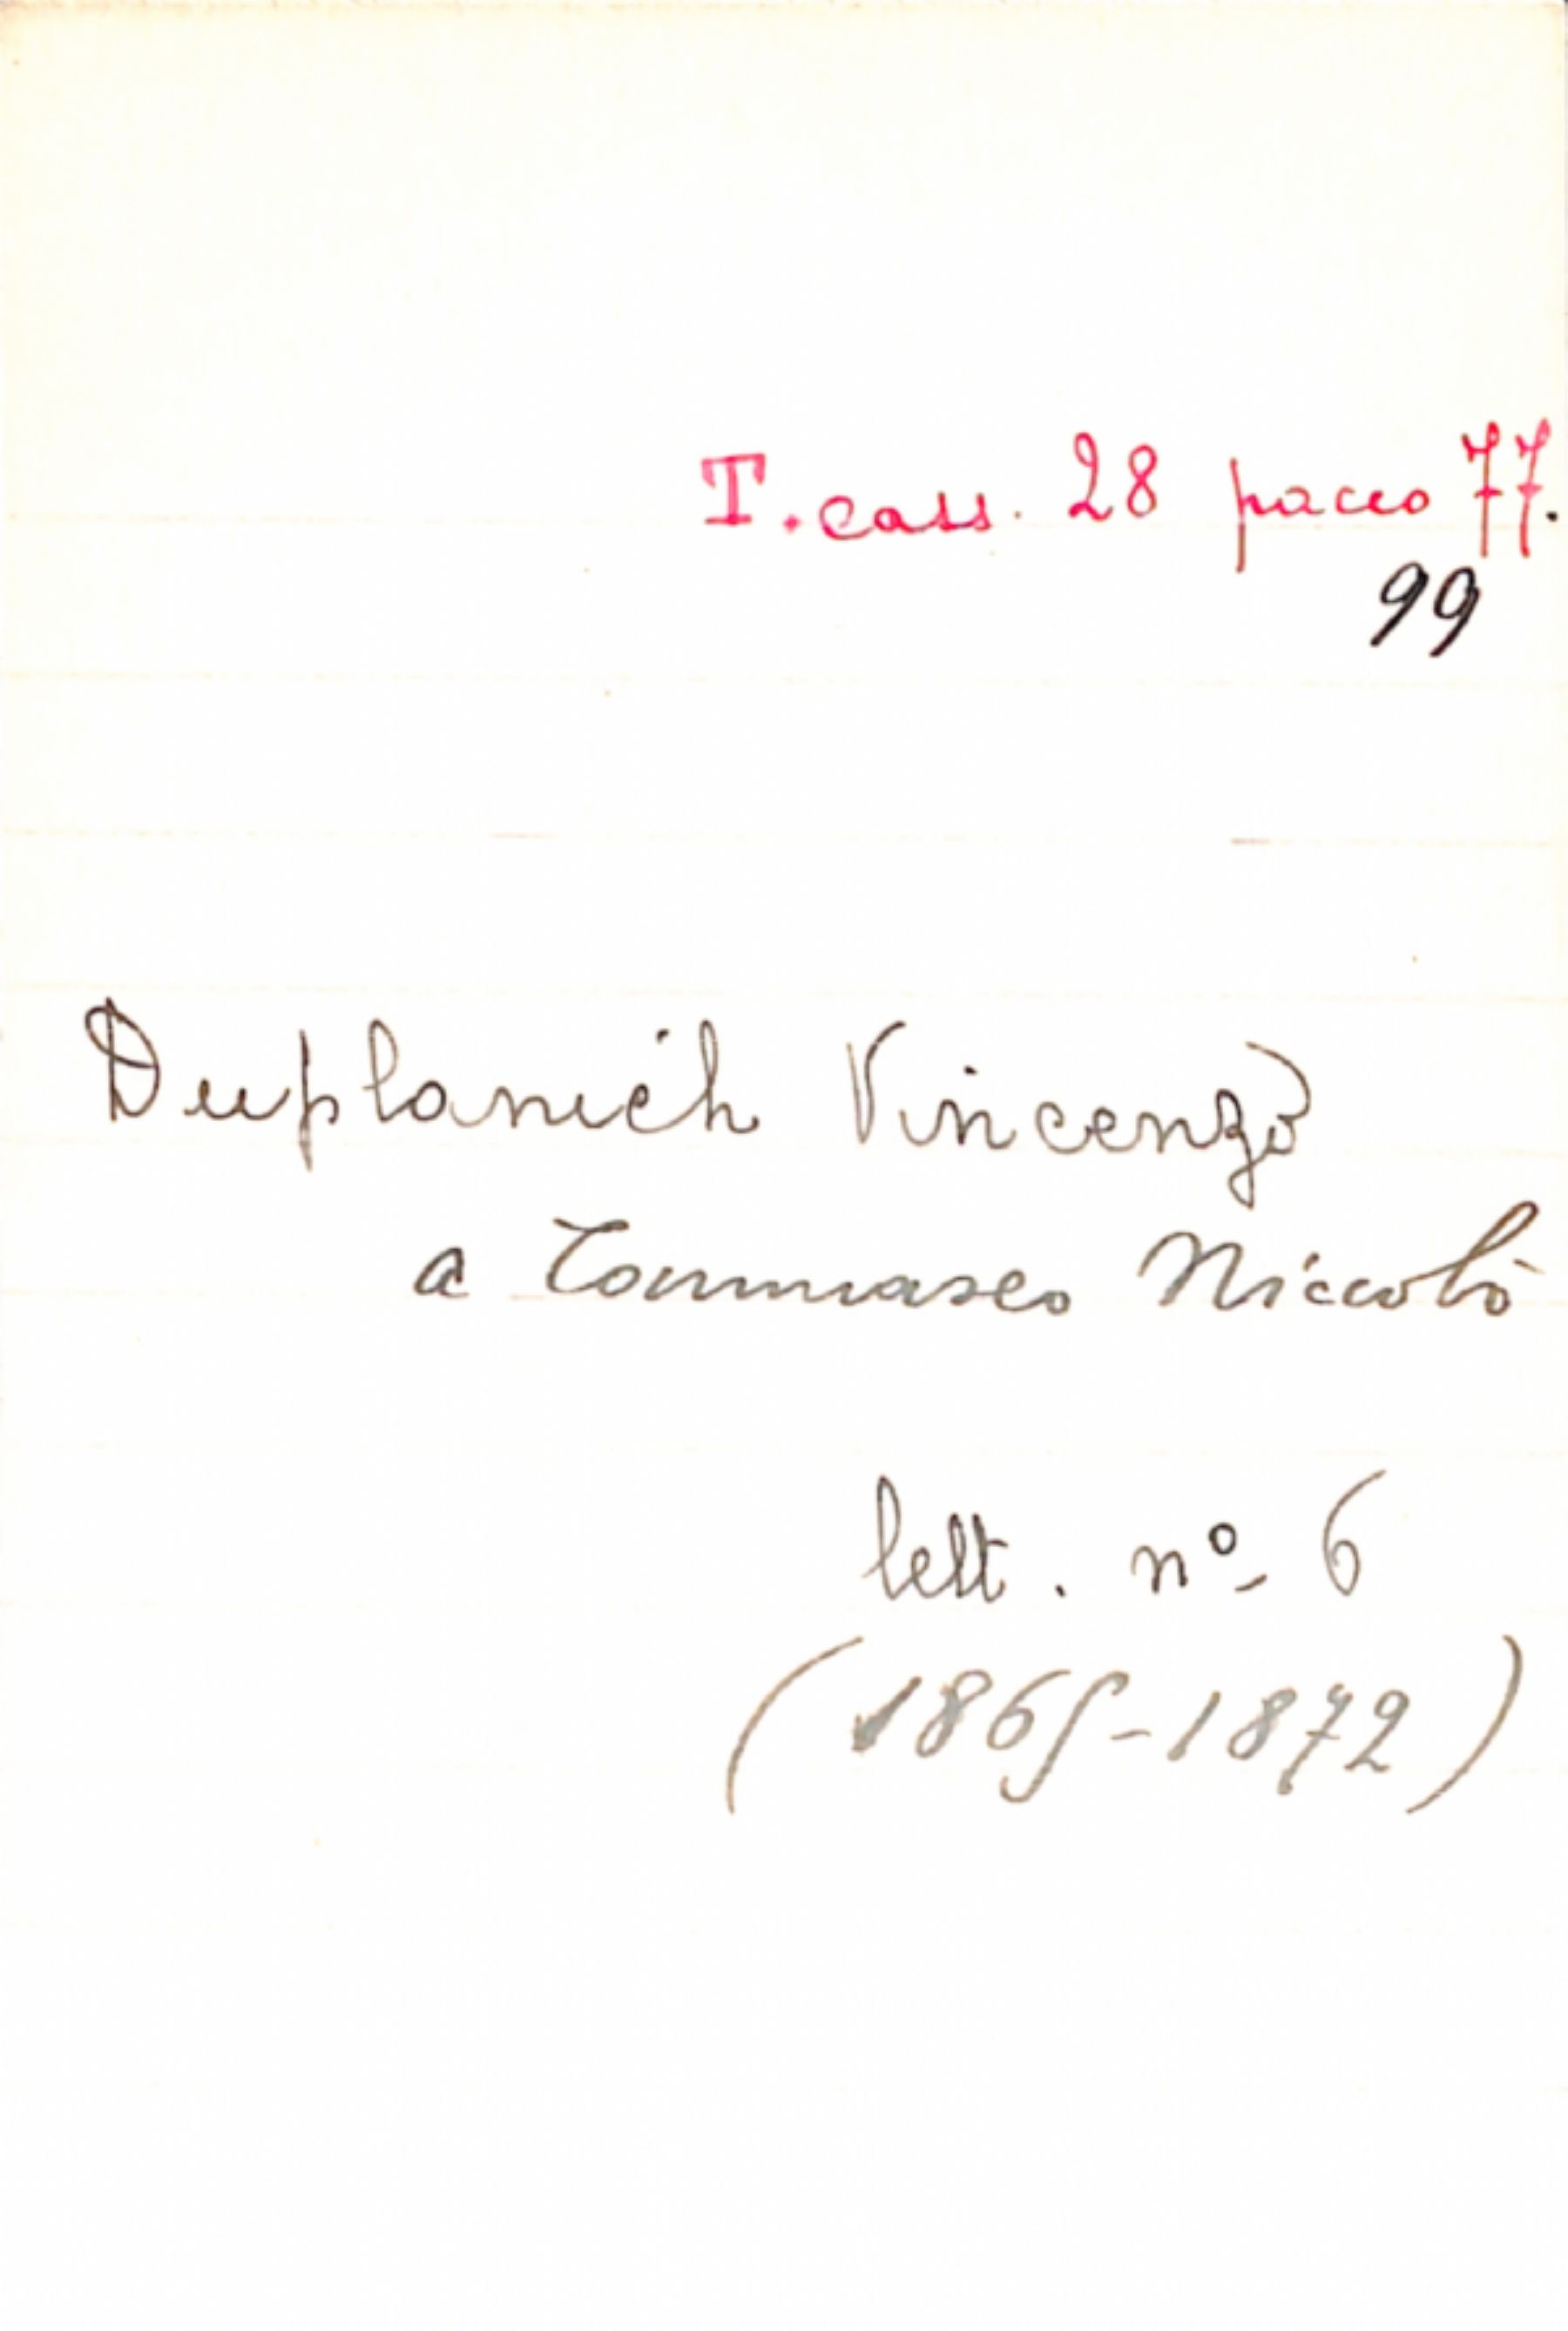 T. cass. 28 pacco 77.
99
Duplanich Vincenzo
a Tommaseo Niccolò
lett. nº 6
(1865-1872)